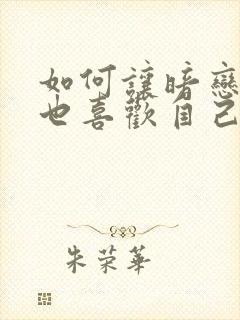 如何讓暗戀
也喜歡自己
朱荣華